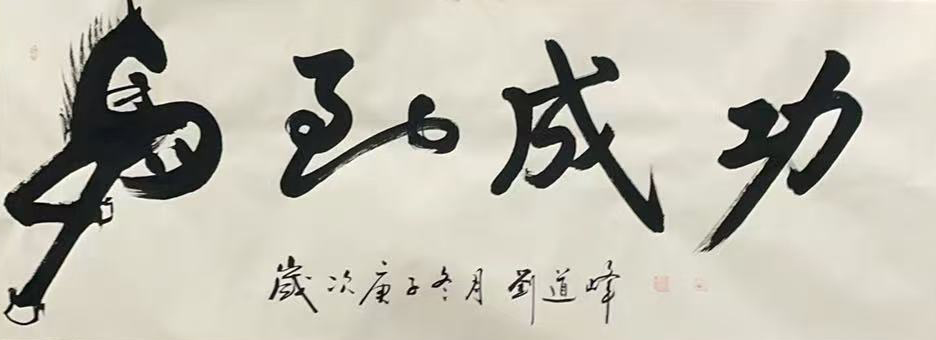 馬到成功
歲次庚子冬月 劉道峰